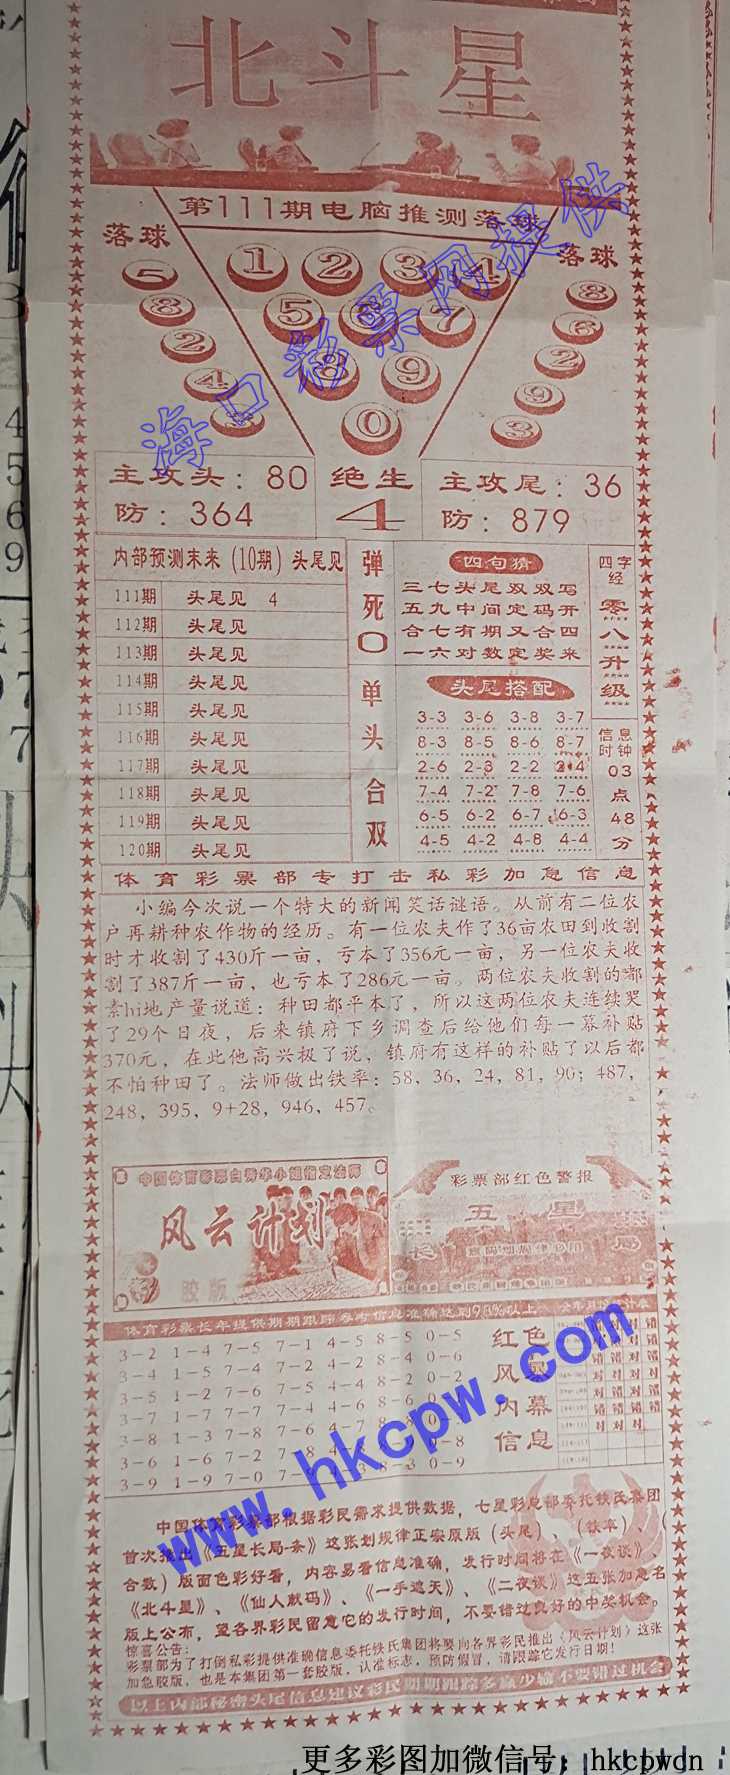 北斗星
第111期电脑推测落球
落球
落球
5
8
2
4
1 2 3 4
5 6 7
8 9
0
8
6
2
9
3
海口彩票网提供
主攻头：80
防：364
绝生
4
主攻尾：36
防：879
内部预测末来（10期）头尾见
111期 头尾见 4
112期 头尾见
113期 头尾见
114期 头尾见
115期 头尾见
116期 头尾见
117期 头尾见
118期 头尾见
119期 头尾见
120期 头尾见
弹死0单头合双
四句猜
三七头尾双双写
五九中间定码开
合七有期又合四
一六对数定奖来
头尾搭配
3-3 3-6 3-8 3-7
8-3 8-5 8-6 8-7
2-6 2-3 2-2 2-4
7-4 7-2 7-8 7-6
6-5 6-2 6-7 6-3
4-5 4-2 4-8 4-4
四字经
零八升级
信息时钟
03点48分
体育彩票部专打击私彩加急信息
小编今次说一个特大的新闻笑话谜语。从前有二位农
户再耕种农作物的经历。有一位农夫作了36亩农田到收割
时才收割了430斤一亩，亏本了356元一亩，另一位农夫收
割了387斤一亩，也亏本了286元一亩。两位农夫收割的嘟
素hi地产量说道：种田都平本了，所以这两位农夫连续哭
了29个日夜，后来镇府下乡调查后给他们每一幕补贴
370元，在此他高兴极了说，镇府有这样的补贴了以后都
不怕种田了。法师做出铁率：58，36，24，81，90；487，
248，395，9+28，946，457。
中国体育彩票白秀华小姐指定法师
风云计划
胶版
彩票部红色警报
五星
长
局
体育彩票长年提供期期跟踪参考信息准确达到98%以上
3-2 1-4 7-5 7-1 4-5 8-5 0-5
3-4 1-5 7-4 7-2 4-2 8-4 0-6
3-5 1-2 7-6 7-5 4-4 8-2 0-2
3-7 1-7 7-7 7-4 4-6 8-6
3-8 1-3 7-8 7-6 4-7 8-8
3-6 1-6 7-2 7-8
3-9 1-9 7-0 8-3 0-9
红色
风暴
内幕
信息
www.hkcpw.com
中国体育彩票部根据彩民需求提供数据，七星彩总部委托铁氏集团
首次推出《五星长局-条》这张划规律正宗原版（头尾）、（铁率）、（
合数）版面色彩好看，内容易看信息准确，发行时间将在《一夜谈》、
《北斗星》、《仙人献码》、《一手遮天》、《二夜谈》这五张加急名
版上公布，望各界彩民留意它的发行时间，不要错过良好的中奖机会。
惊喜公告：
彩票部为了打倒私彩提供准确信息委托铁氏集团将要向各界彩民推出《风云计划》这张
加急胶版，也是本集团第一套胶版，认准标志，预防假冒，请跟踪它发行日期！
以上内部秘密头尾信息建议彩民期期跟踪多赢少输不要错过机会
更多彩图加微信号：hkcpwcn